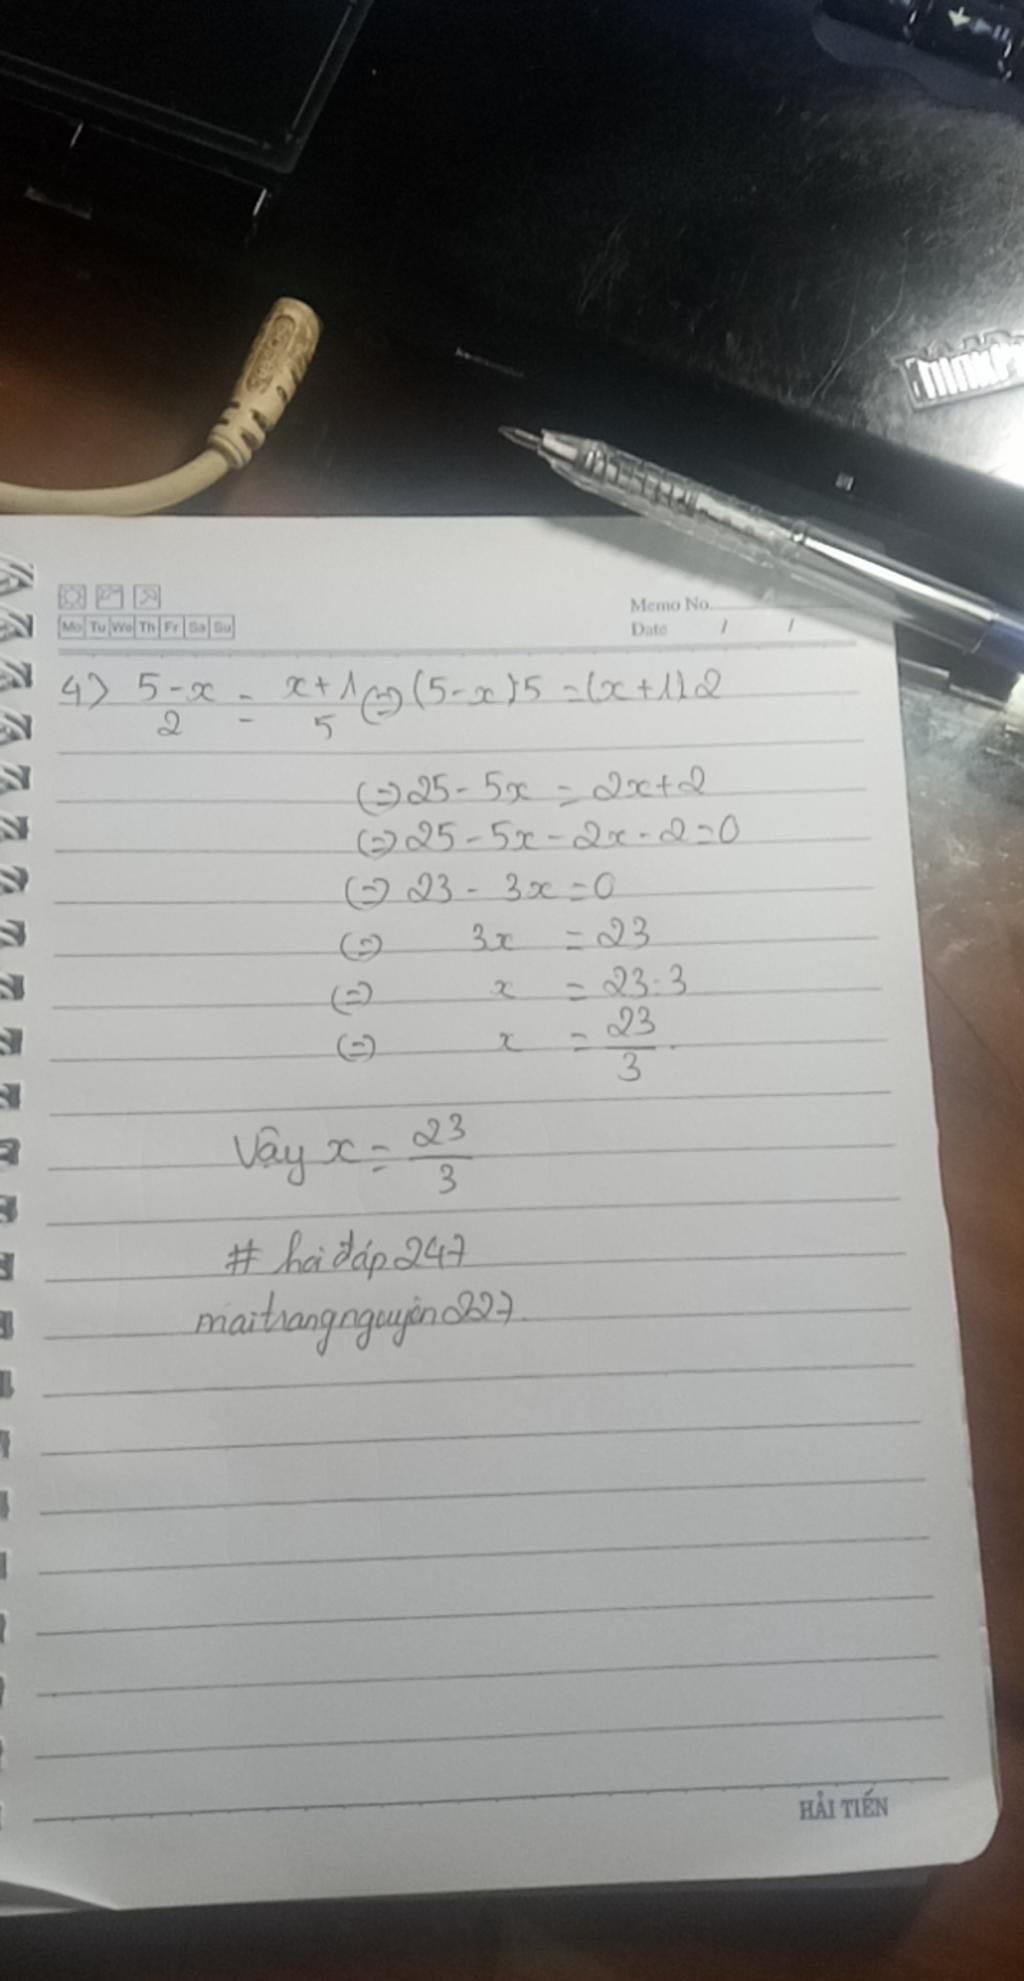 ThinkP
Memo No.
Mo Tu We Th Fr Sa Su
Date / /
4) 5-x/2 = x+1/5 (=) (5-x)5 = (x+1)2
(=) 25 - 5x = 2x+2
(=) 25 - 5x - 2x - 2 = 0
(=) 23 - 3x = 0
(=) 3x = 23
(=) x = 23:3
(=) x = 23/3.
Vậy x = 23/3
# hoi đáp 247
maitrangnguyên227.
HẢI TIẾN